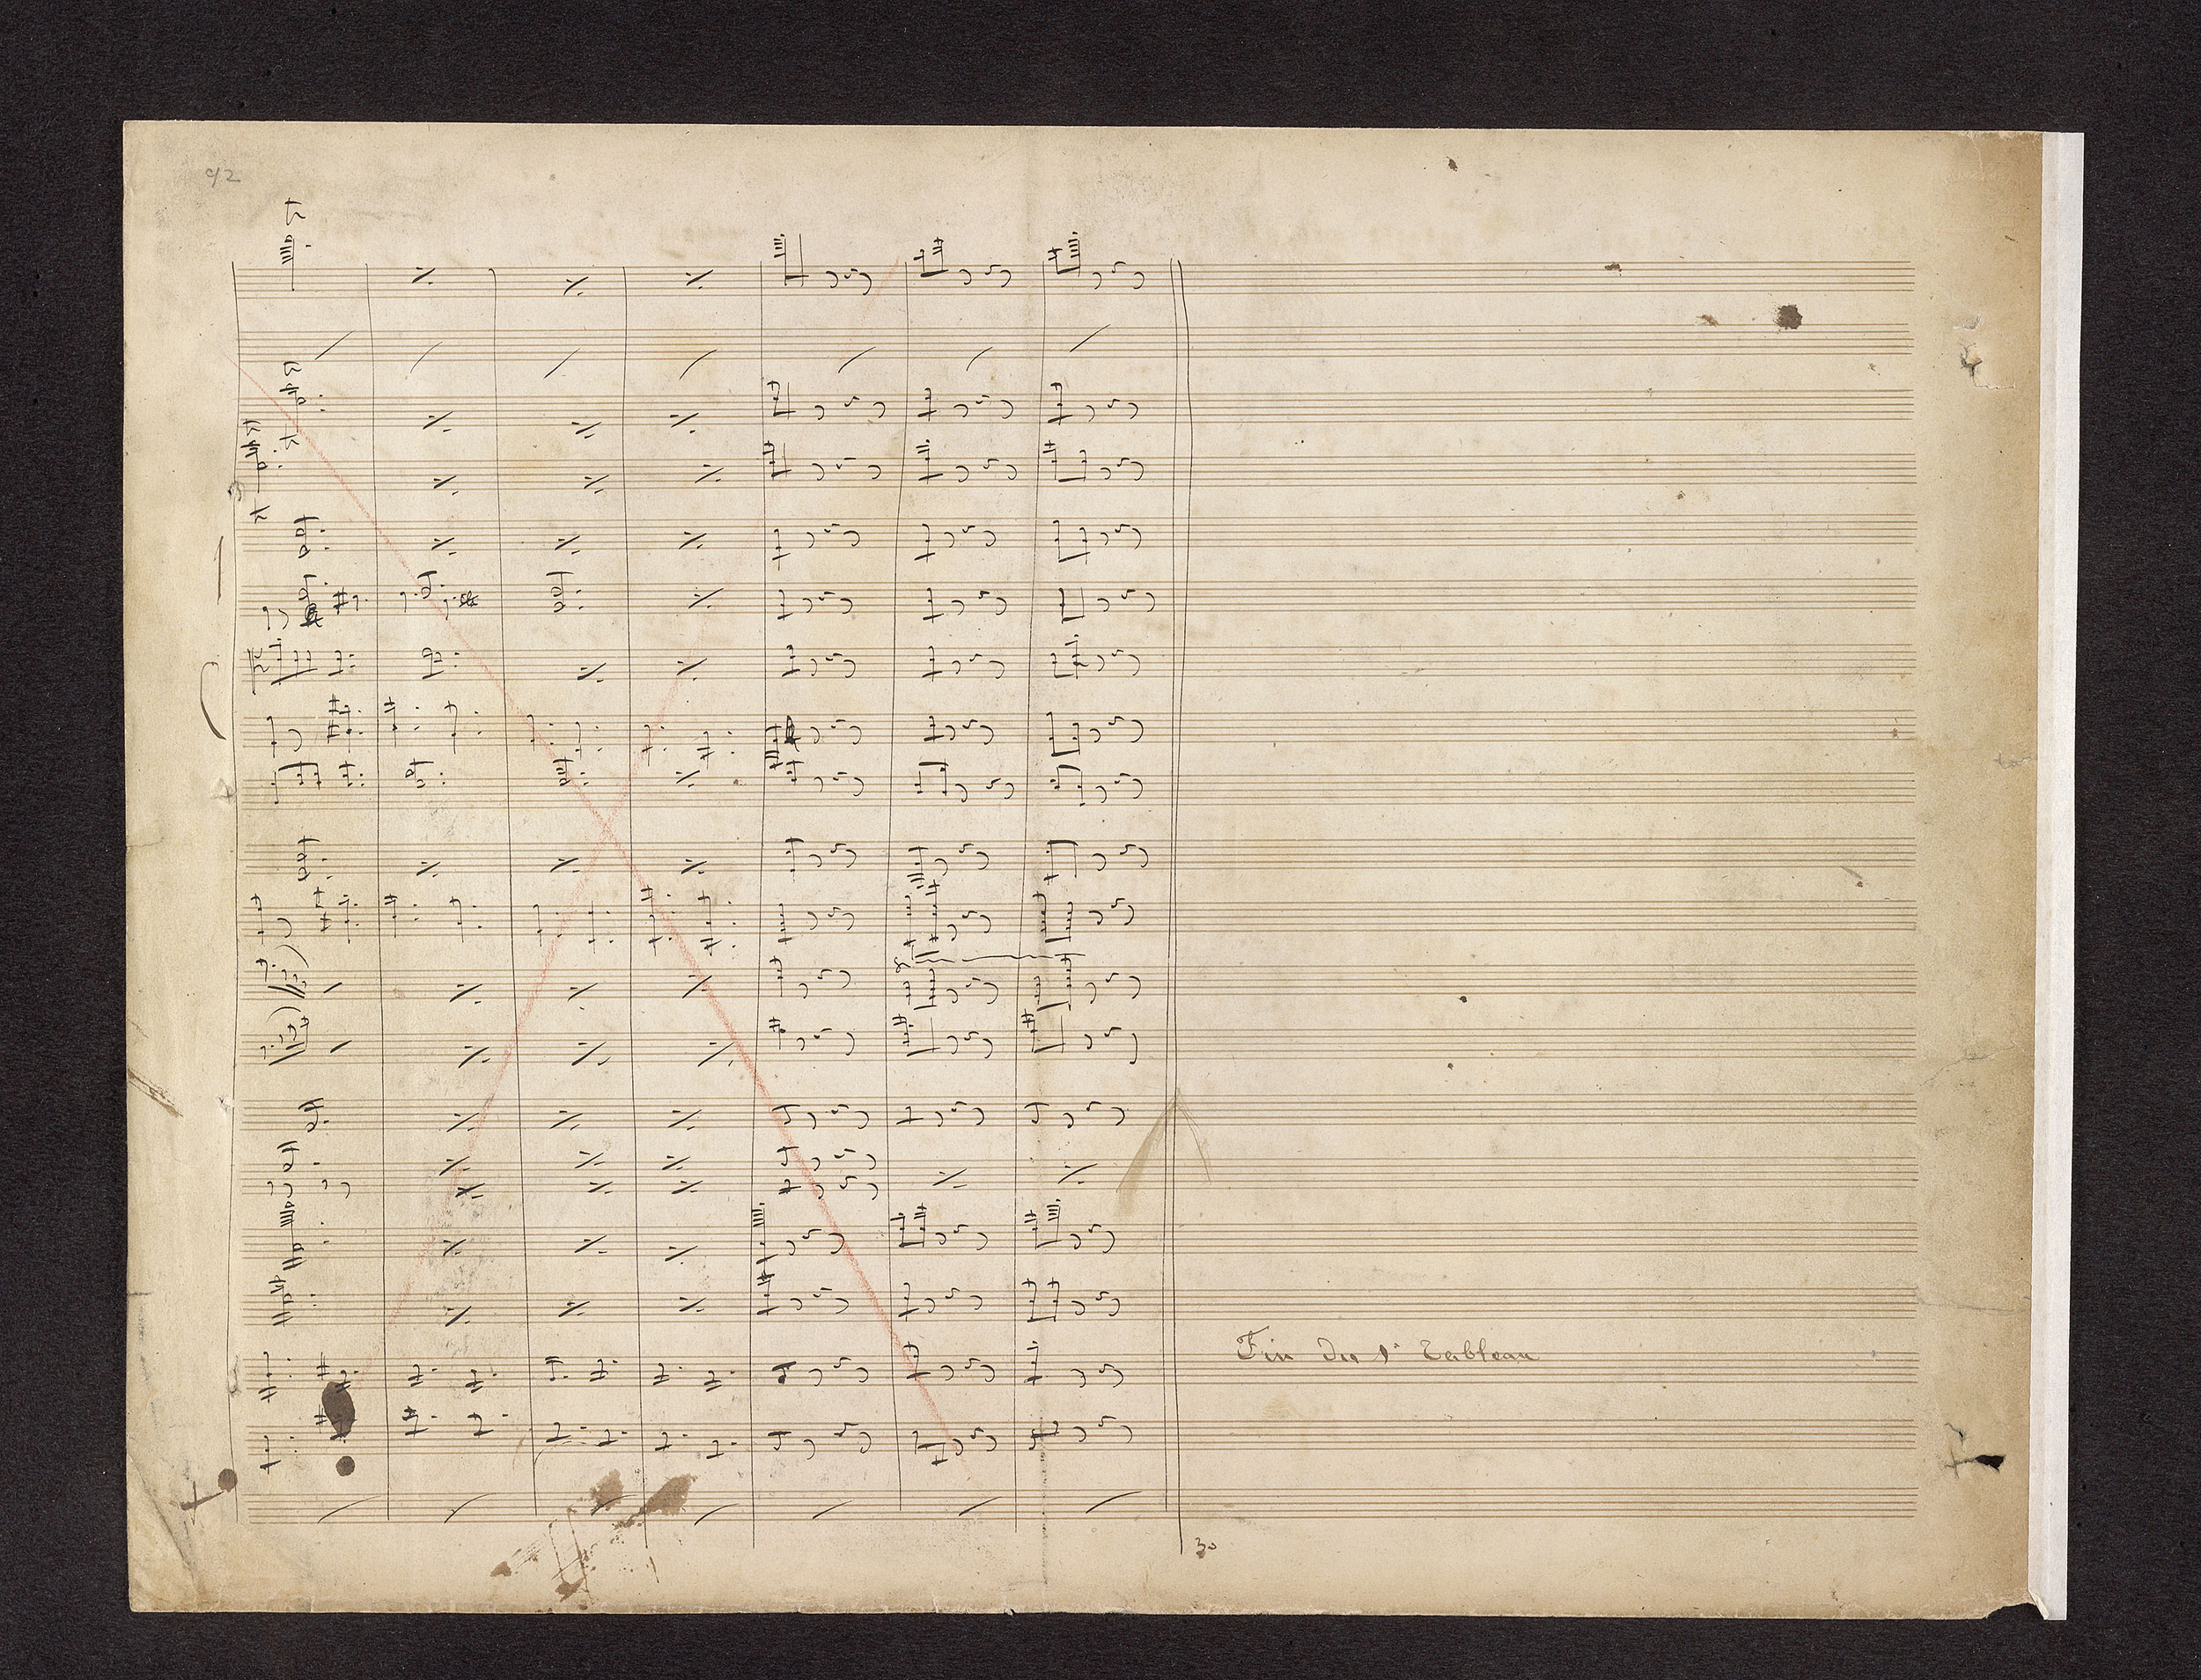 92
Fin du 1r Tableau
30